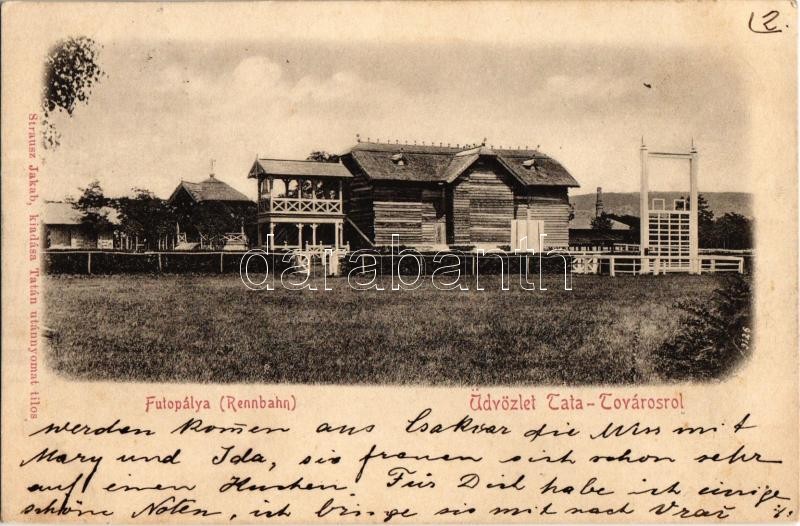 2.
Strausz Jakab, kiadása Tatán utánnyomat tilos
darabanth
1126
Futopálya (Rennbahn)
Üdvözlet Tata-Továrosról
werden kommen aus Csakvar die Miss mit
Mary und Ida, sie freuen sich schon sehr
auf einen Kuchen. Für Dich habe ich einige
schöne Noten, ich bringe sie mit nach